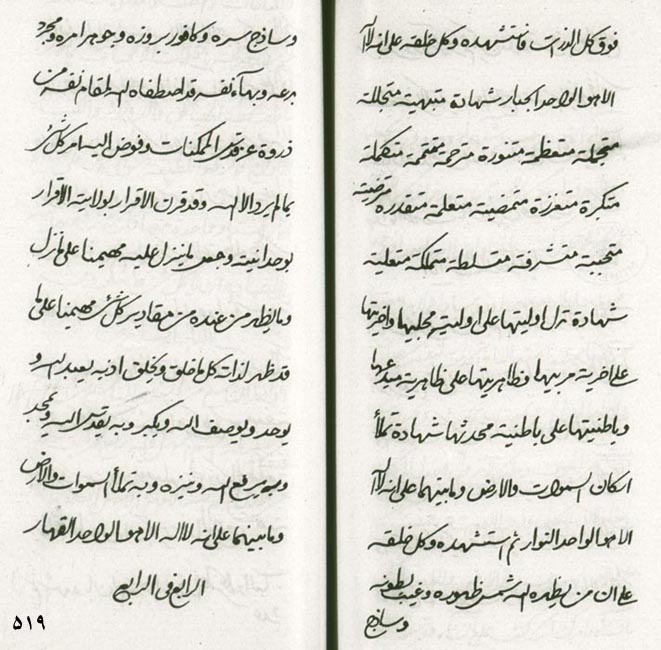 فوق كل الذرات فاستشهده وكل خلقه على انه لا اله
الا هو الواحد الجبار شهادة متبهية متجللة
متجملة متعظمة متنورة مترحمة متكملة
متكبرة متعززة متمضية متعلمة متقدرة مترضية
متحببة متشرفة متسلطة متملكة متعلية
شهادة تزل اوليتها على اولية مجليها واخريتها
على اخرية مربيها وظاهريتها على ظاهرية مبدعها
وباطنيتها على باطنية محدثها شهادة تملأ
اركان السموات والارض وما بينهما على انه لا اله
الا هو الواحد النوار ثم استشهده وكل خلقه
على ان من يظهره الله شمس ظهوره وغيب بطونه
وساذج
وساذج سره وكافور بروزه وجوهر امره ومجرد
بدعه وبهاء نفسه قد اصطفاه الله لمقام نفسه من
ذروة عز قدس الممكنات وفوض اليه امر كل شئ
بما لم يرد الا الله وقد قرنت الاقرار بولايته الاقرار
بوحدانيته وجعل ما ينزل عليه مهيمنا على ما نزل
وما يظهر من عنده من مقادير كل شئ مهيمنا على ما
قد ظهر لذاته كل ما خلق ويخلق اذ به يعبد الله و
يوحد ويوصف الله ويكبر وبه يقدس الله ويمجد
وبه يرفع الله وينزه وبه تملأ السموات والارض
وما بينهما على انه لا اله الا هو الواحد القهار
الرابع فى الرابع
۵۱۹